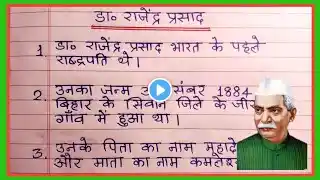 डा० राजेंद्र प्रसाद
1. डा० राजेंद्र प्रसाद भारत के पहले
राष्ट्रपति थे।
2. उनका जन्म 3 1884
बिहार के सिवान जिले के
गाँव में हुआ था।
3. उनके पिता का नाम
और माता का नाम